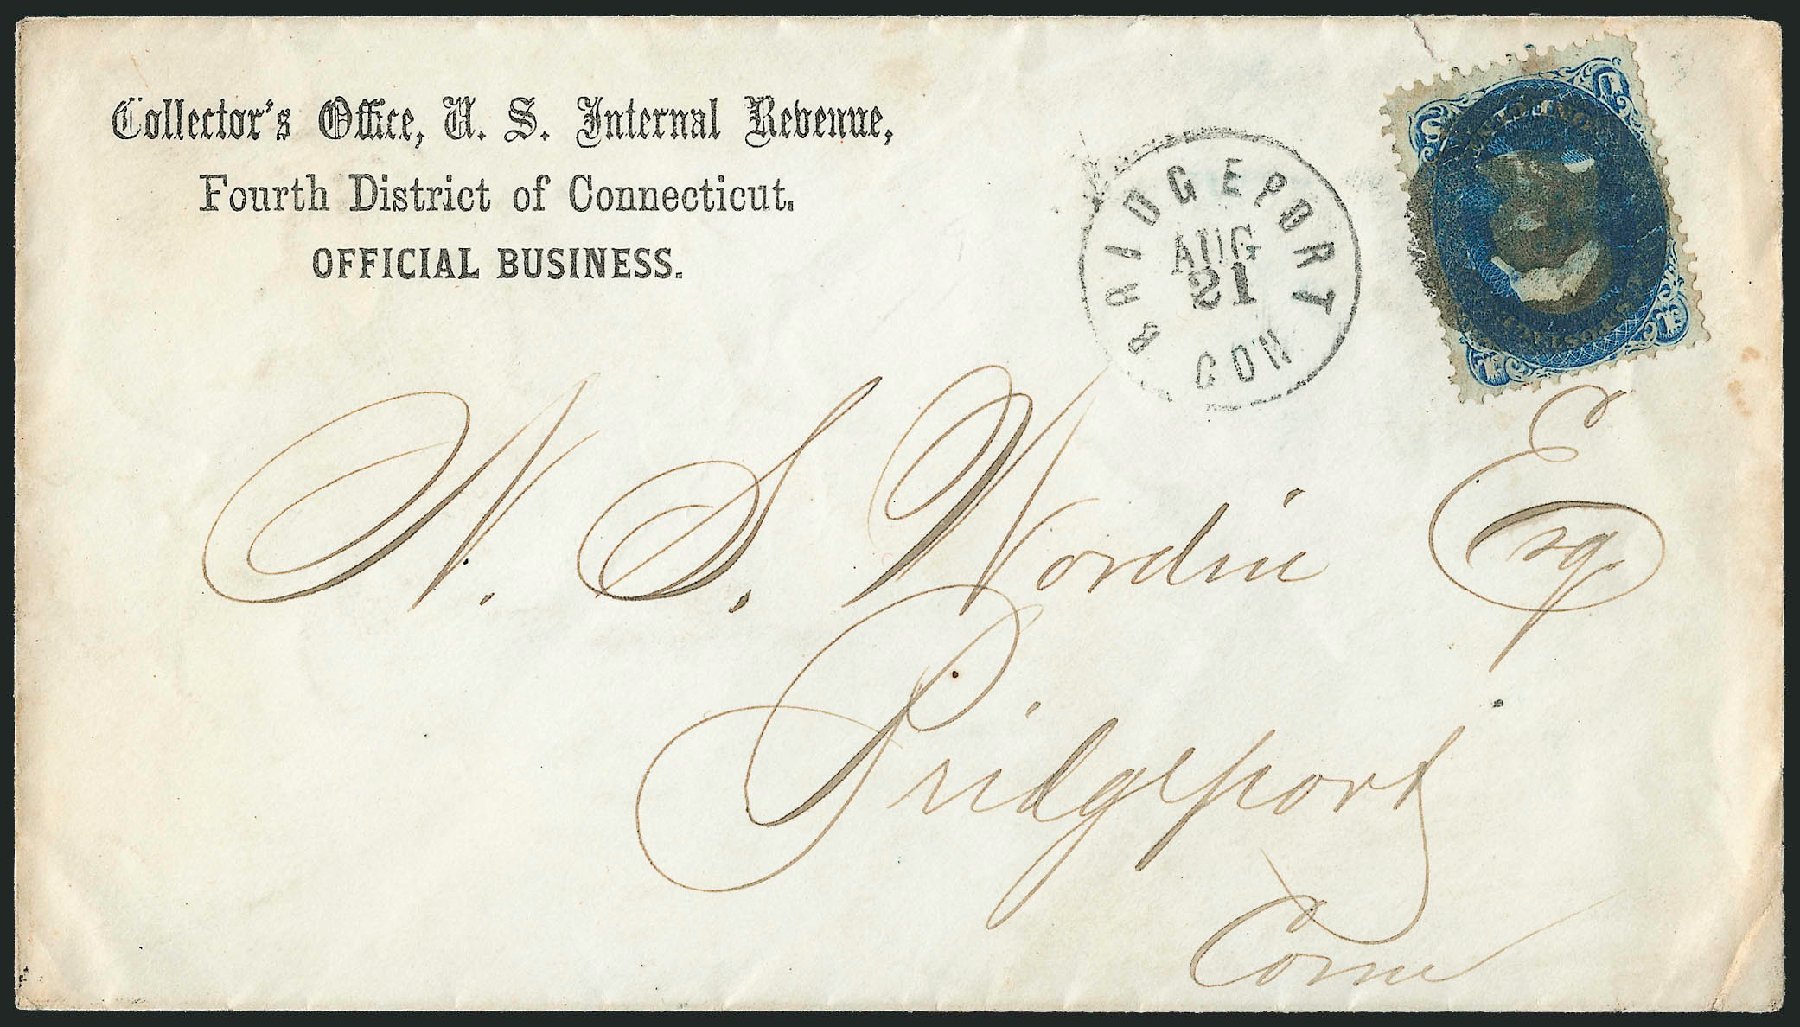 Collector's Office, U. S. Internal Revenue,
Fourth District of Connecticut.
OFFICIAL BUSINESS.
BRIDGEPORT
AUG
21
CON
1
1
1
N. S. Wordin Esq.
Bridgeport
Conn